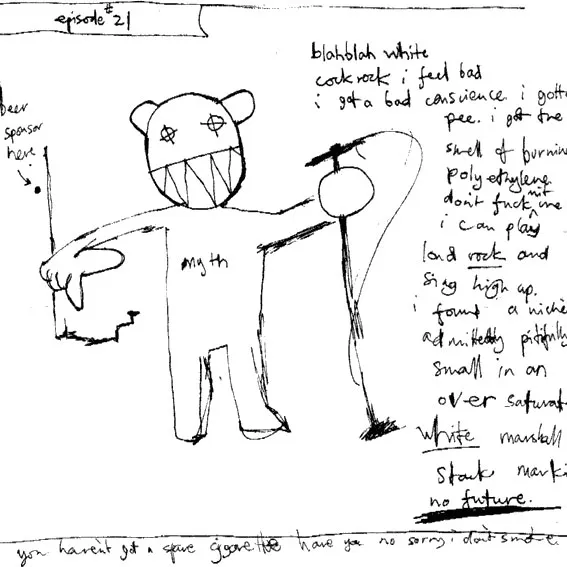 episode #21
beer
sponsor
here
blahblah white
cock rock i feel bad
i got a bad conscience. i gotta
pee. i got the
smell of burnin
polyethylene
don't fuck wit me
i can play
loud rock and
sing high up.
i found a niche
admittedly pitifully
small in an
over saturat
white marshall
stack marki
no future.
myth
you haven't got a spare cigarette have you no sorry i don't smoke